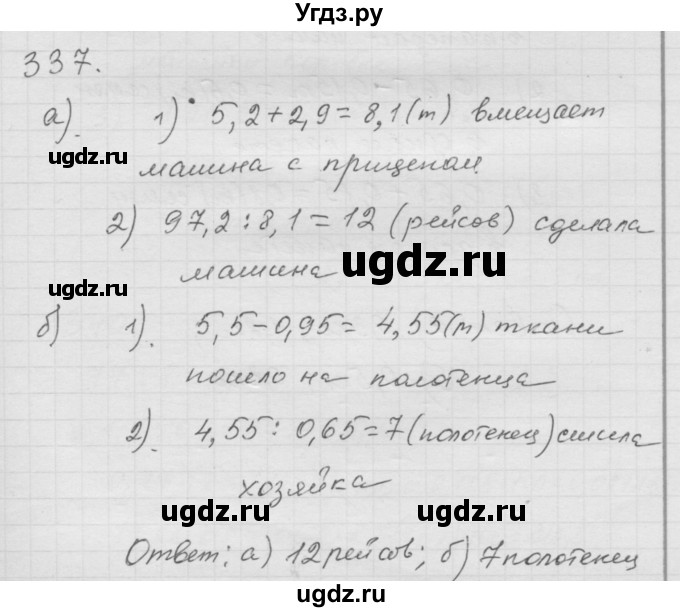 Угдз.ру
337.
а). 1) 5,2+2,9=8,1(т) вмещает
ugdz.ru
ugdz.ru
машина с прицепом.
2) 97,2:8,1=12 (рейсов) сделала
машина
ugdz.ru
б) 1). 5,5-0,95= 4,55(м) ткани
пошло на полотенца
2). 4,55: 0,65=7 (полотенец) сшила
хозяйка
ugdz.ru
ugdz.ru
Ответ: а) 12 рейсов; б) 7 полотенец
ugdz.ru
ugdz.ru